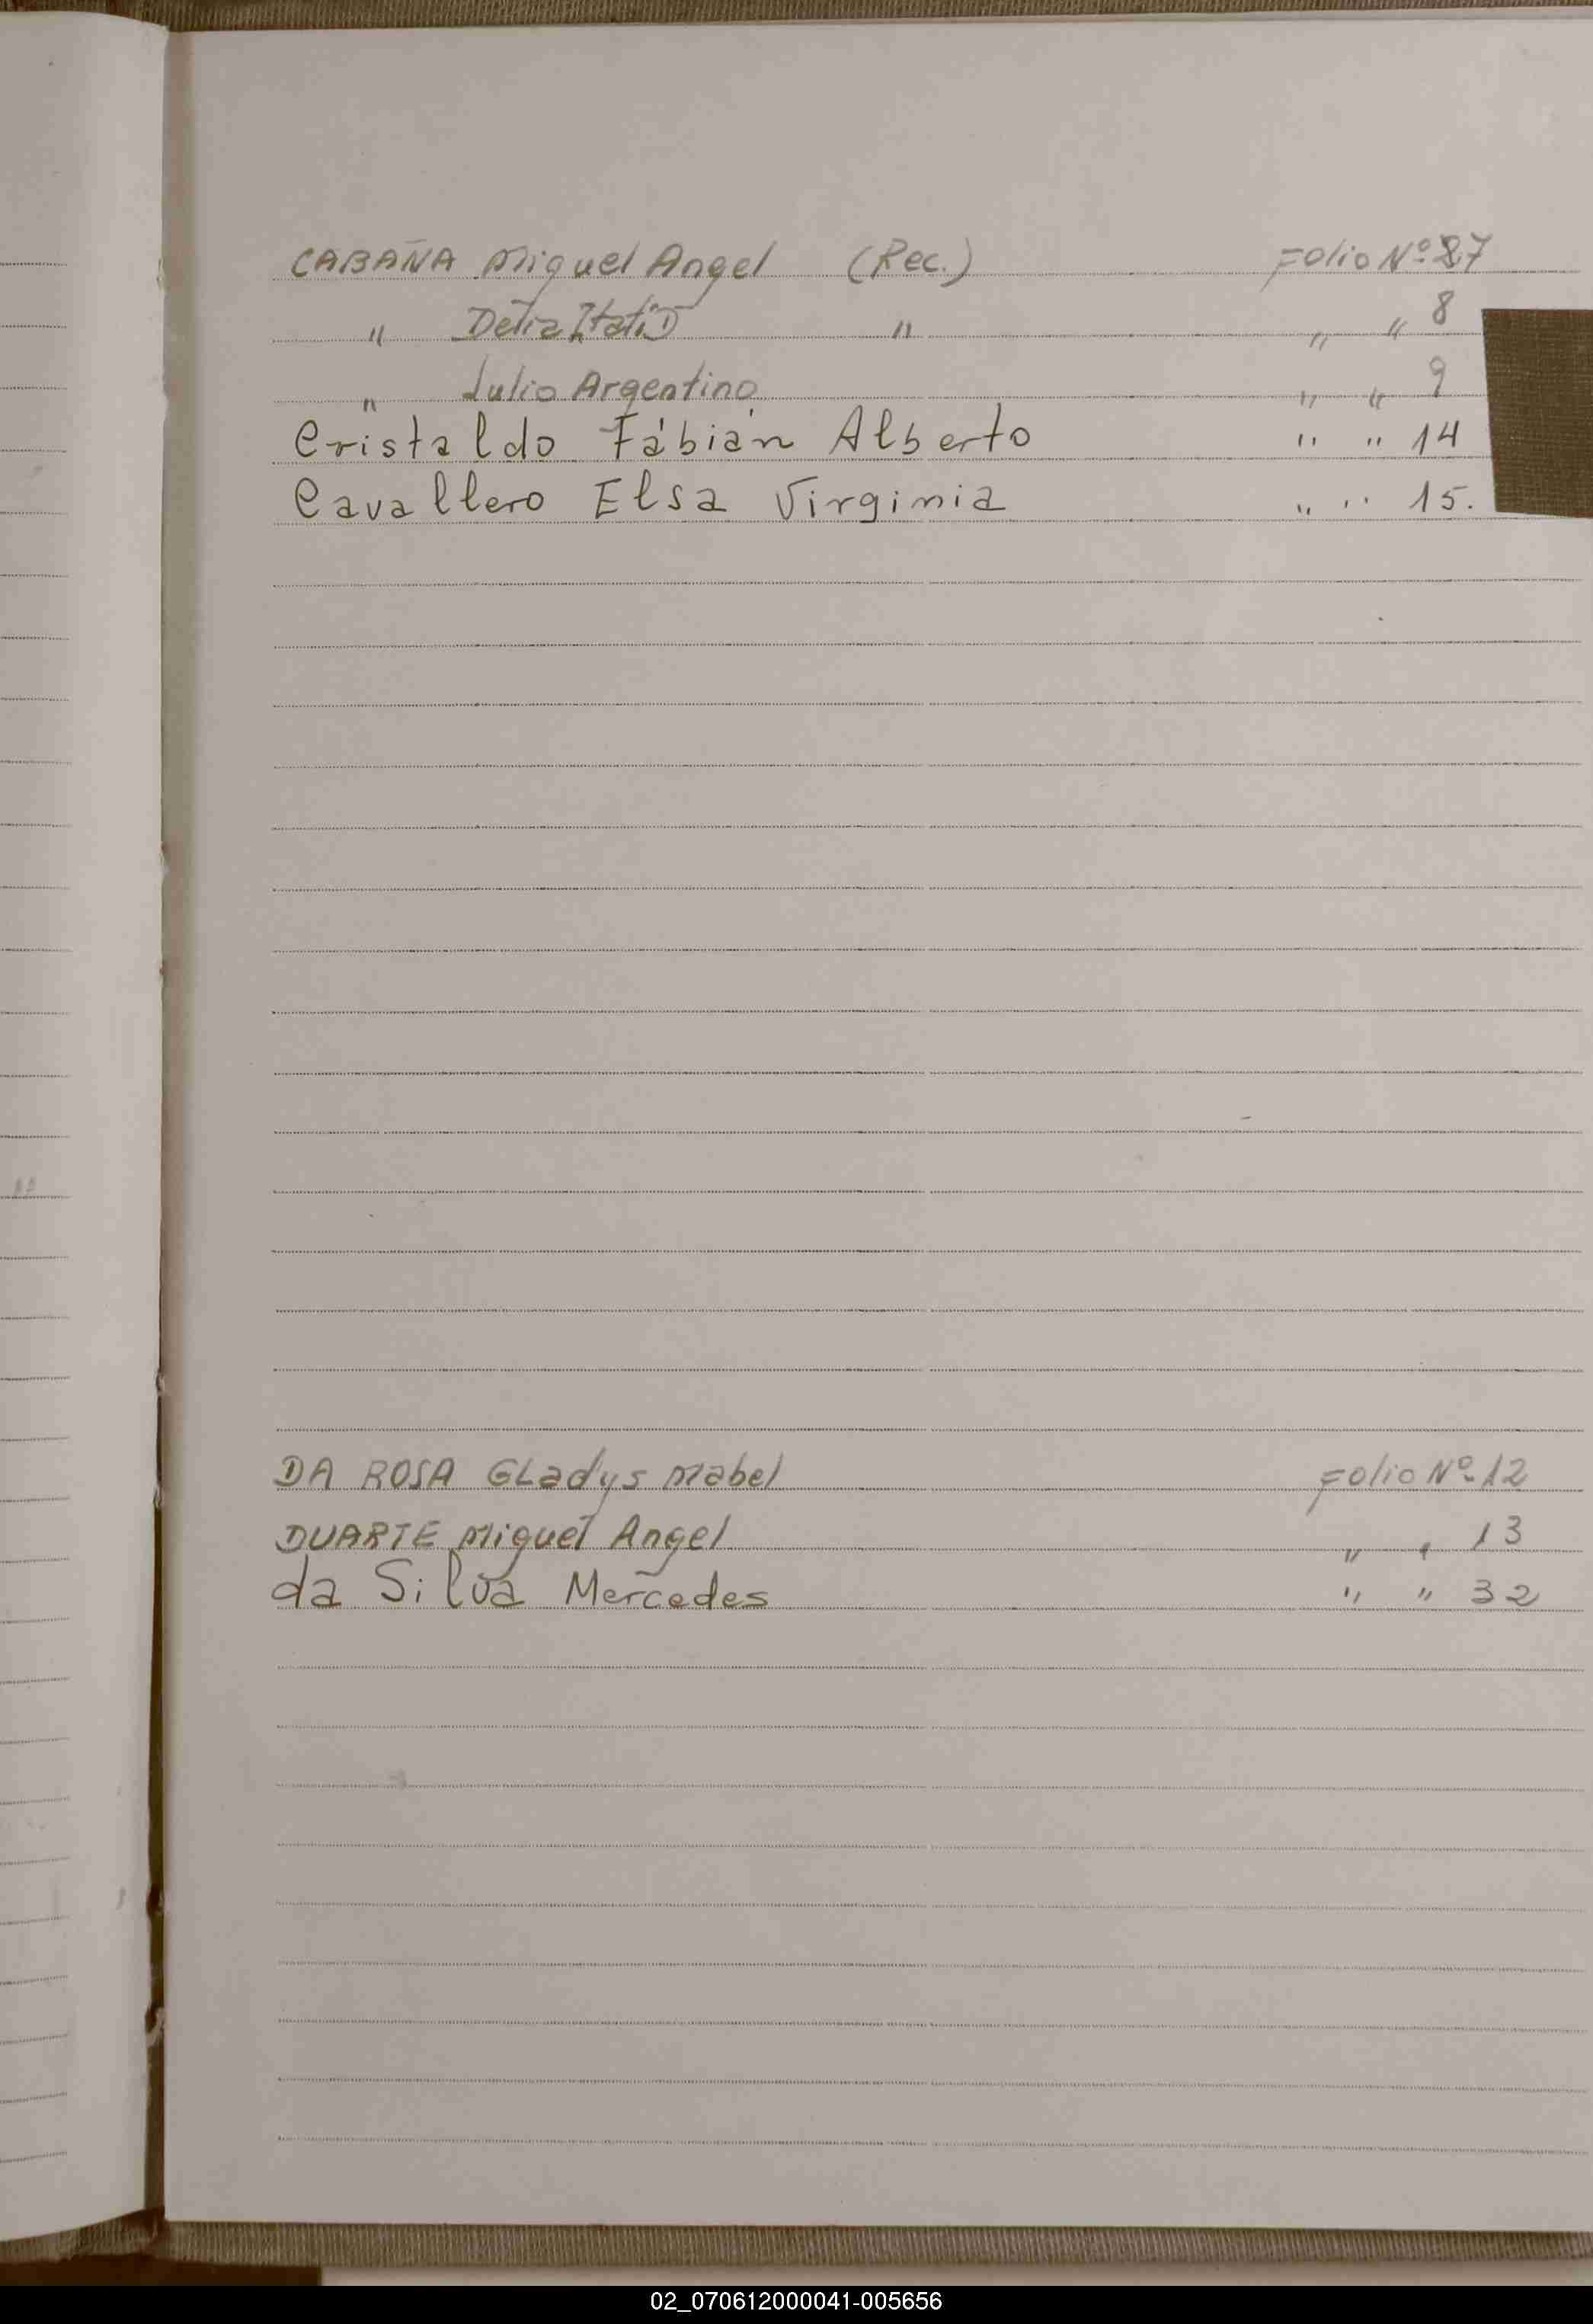 CABAÑA Miguel Angel (Rec.) Folio Nº 7
" Delia Itatí " " " 8
" Julio Argentino " " 9
Cristaldo Fabián Alberto " " 14
Cavallero Elsa Virginia " " 15.
DA ROSA GLadys Mabel Folio Nº 12
DUARTE Miguel Angel " " 13
da Silva Mercedes " " 32
02_070612000041-005656